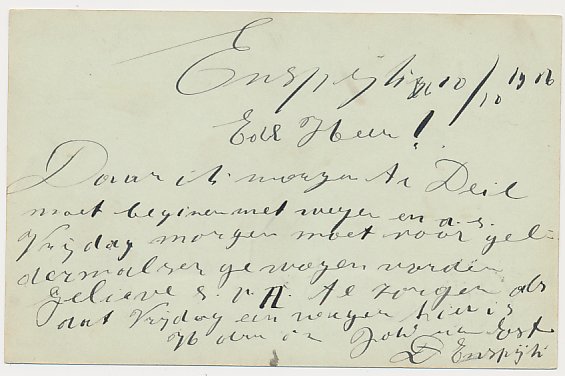 Enspijk 10/10 1916
Edl Heer!
Daar ik morgen te Deil
moet beginen met wegen en a.s.
Vrijdag morgen moet voor gel
dermalsen gewogen worden
gelieve s.v.p. te zorgen als
dat Vrijdag een wagen hier is
Joh van Est
Enspijk